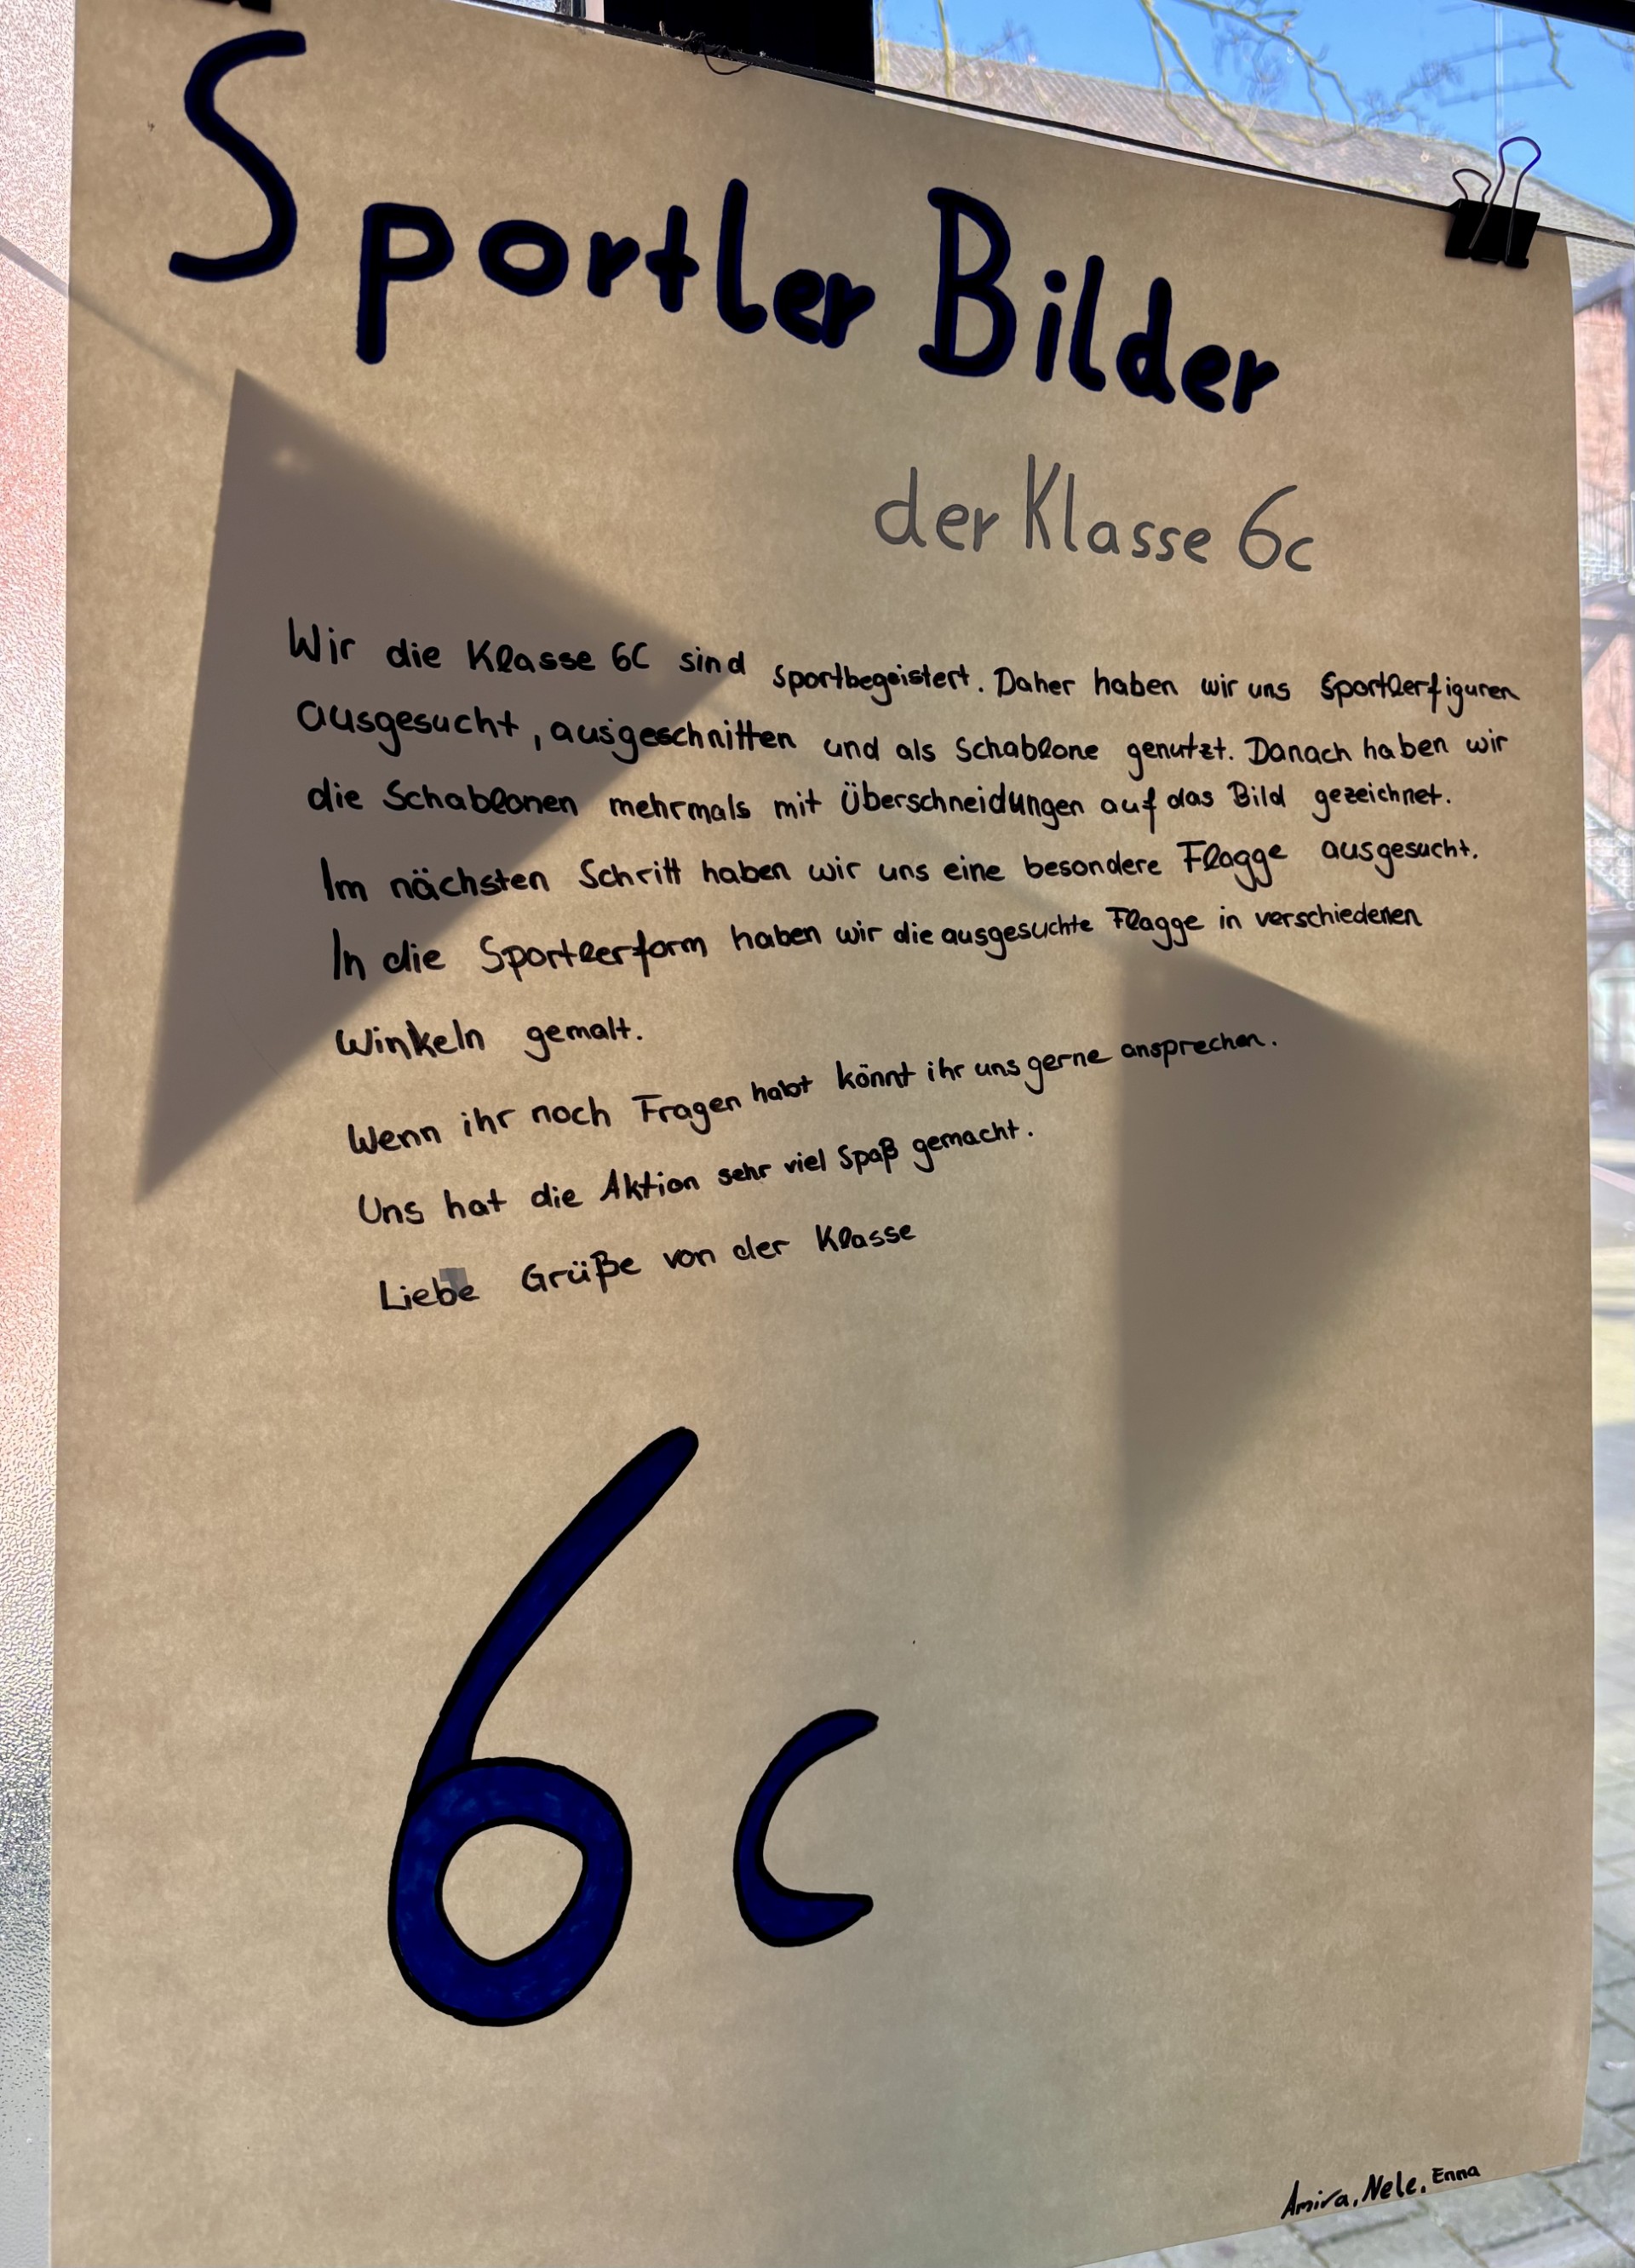 Sportler Bilder
der Klasse 6c
Wir die Klasse 6C sind sportbegeistert. Daher haben wir uns Sportlerfiguren
ausgesucht, ausgeschnitten und als Schablone genutzt. Danach haben wir
die Schablonen mehrmals mit Überschneidungen auf das Bild gezeichnet.
Im nächsten Schritt haben wir uns eine besondere Flagge ausgesucht.
In die Sportlerform haben wir die ausgesuchte Flagge in verschiedenen
Winkeln gemalt.
Wenn ihr noch Fragen habt könnt ihr uns gerne ansprechen.
Uns hat die Aktion sehr viel Spaß gemacht.
Liebe Grüße von der Klasse
6c
Amira, Nele, Enna